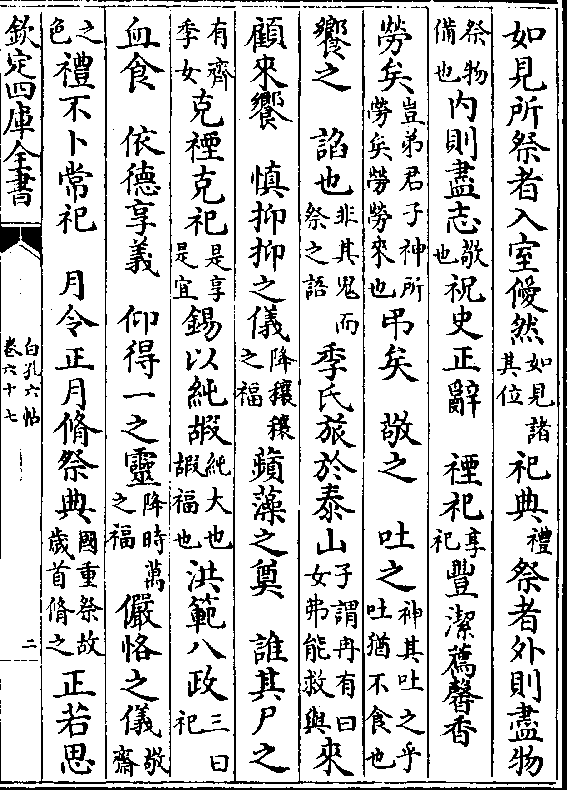 如見所祭者入室僾然如見諸其位祀典禮祭者外則盡物
祭物備也内則盡志敬也祝史正辭 禋祀享祀豐潔薦馨香
勞矣豈弟君子神所勞矣勞勞來也弔矣 敬之 吐之神其吐之乎吐猶不食也
饗之 諂也非其鬼而祭之諂季氏旅於泰山子謂冉有曰女弗能救與來
顧來饗 慎抑抑之儀降穰穰之福蘋藻之奠 誰其尸之
有齊季女克禋克祀是享是宜錫以純嘏純大也嘏福也洪範八政三曰祀
血食 依德享義 仰得一之靈降時萬之福儼恪之儀敬齋
之色禮不卜常祀 月令正月脩祭典國重祭故歲首脩之正若思
欽定四庫全書
白孔六帖
卷六十七
二